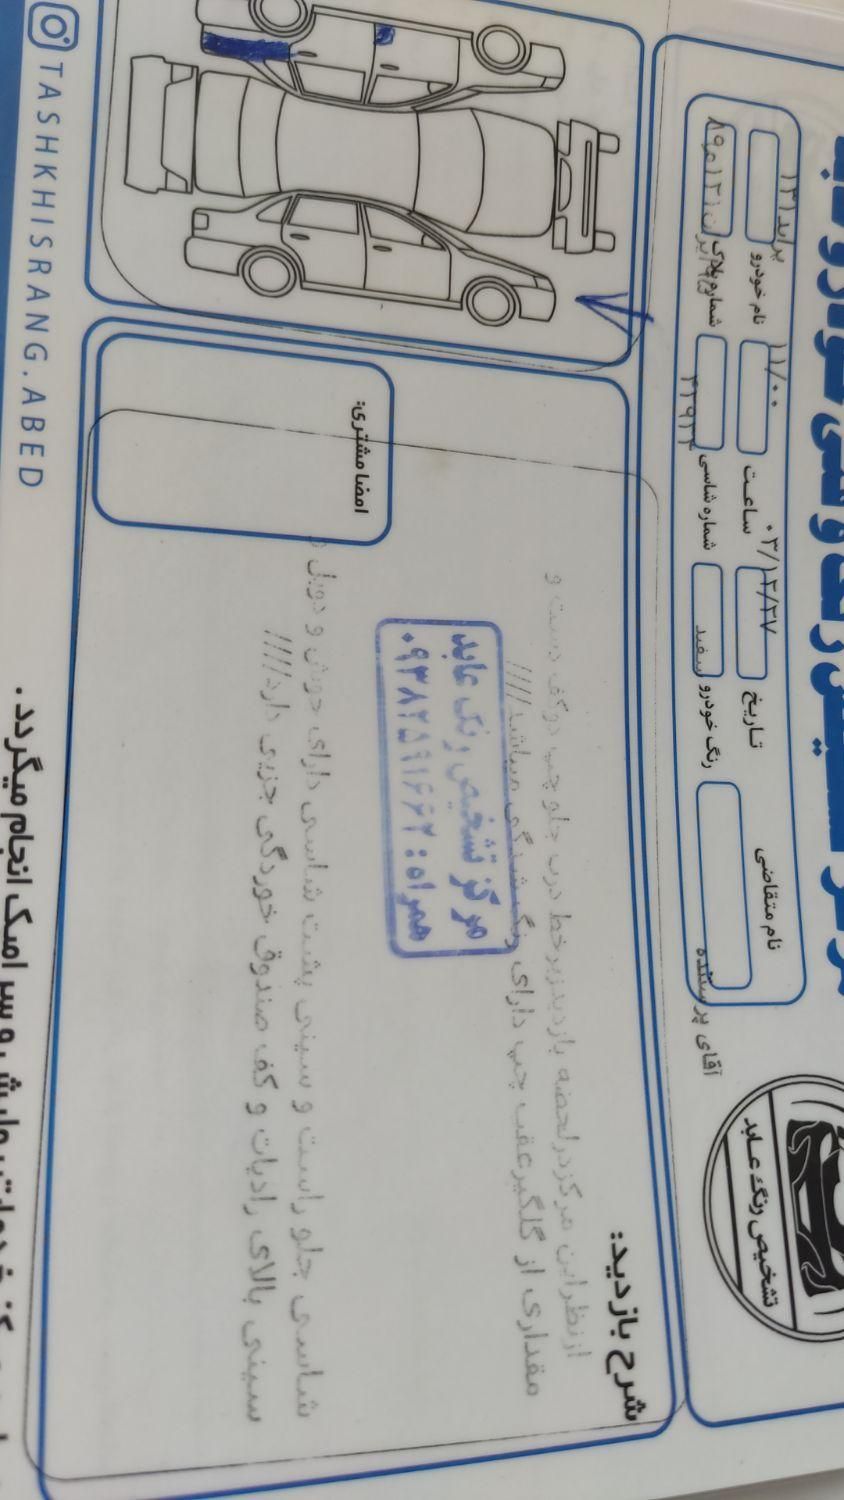 تشخیص رنگ عابد
نام متقاضی
آقای پرستنده
تاریخ
۰۳/۱۲/۲۷
ساعت
۱۱/۰۰
نام خودرو
پراید ۱۳۱
رنگ خودرو
سفید
شماره شاسی
شماره پلاک
شرح بازدید:
از نظر این مرکز در لحضه بازدید زیر خط درب جلو چپ دو کف دست و
مقداری از گلگیر عقب چپ دارای رنگ شدگی میباشد////
مرکز تشخیص رنگ عابد
همراه: ۰۹۳۸۲۵۹۱۶۶۲
شاسی جلو راست و سینی پشت شاسی دارای جوش و دوبل و
سینی بالای رادیات و کف صندوق خوردگی جزیی دارد////
امضا مشتری:
انجام میگردد.
TASHKHISRANG.ABED